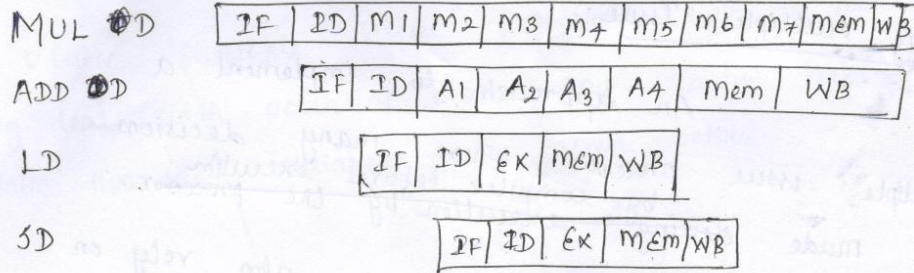 MUL D IF ID M1 M2 M3 M4 M5 M6 M7 MEM WB
ADD D IF ID A1 A2 A3 A4 Mem WB
LD IF ID EX MEM WB
SD IF ID EX MEM WB